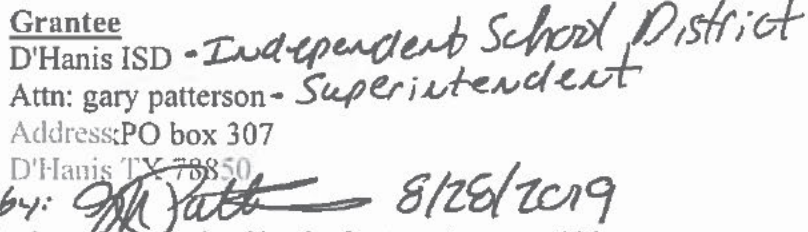 Grantee
D'Hanis ISD - Independent School District
Attn: gary patterson - Superintendent
Address:PO box 307
D'Hanis TX 78850
by: 8/28/2019